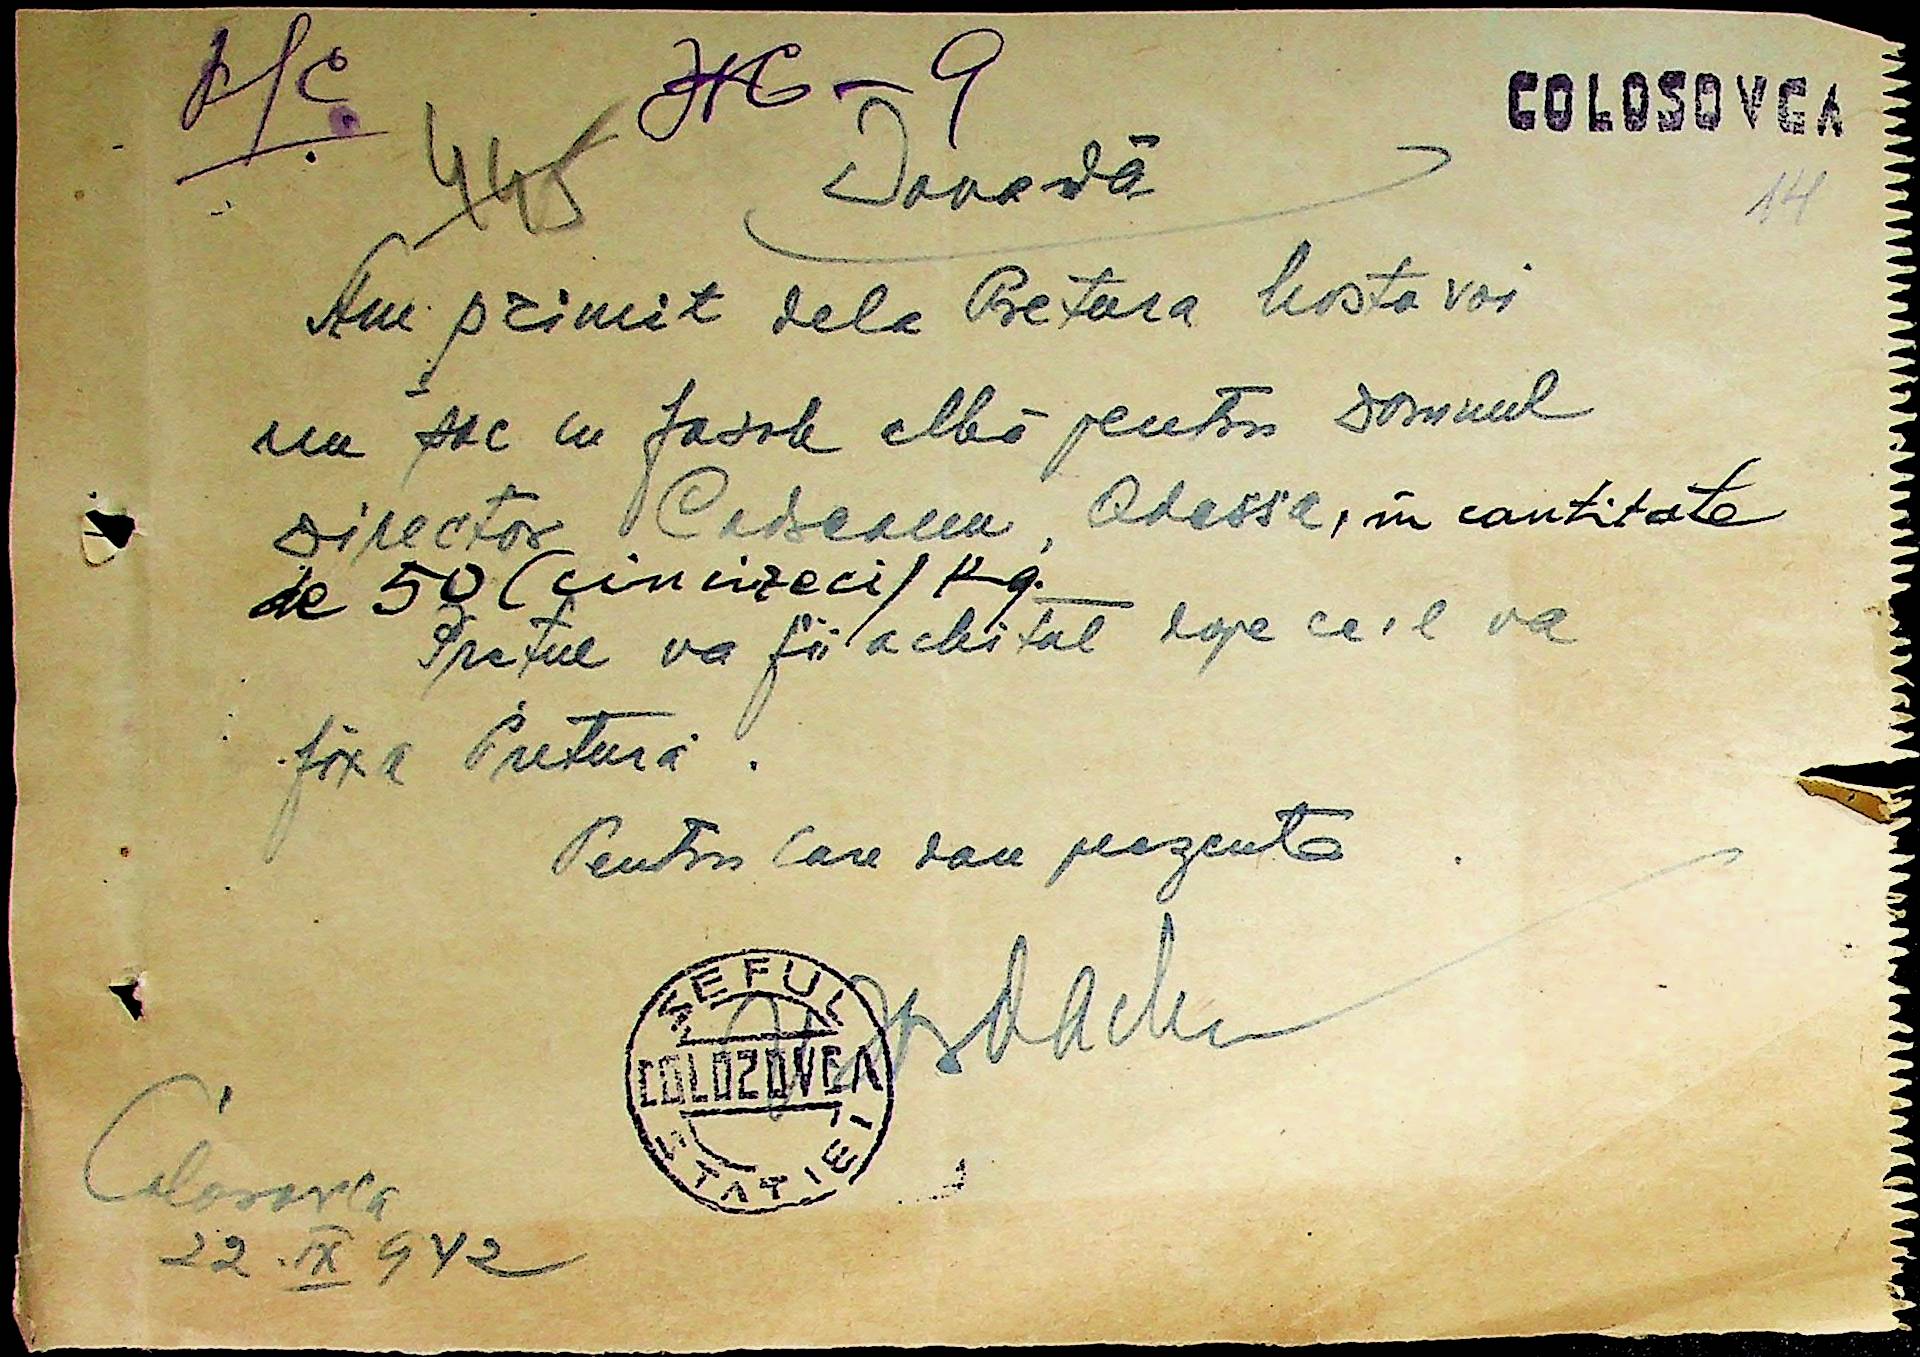 Ж-9
COLOSOVCA
445
14
Dovadă
Am primit dela Pretura Mostovoi
un sac cu fasole albă pentru Domnul
Director Codreanu, Odessa, în cantitate
de 50 (cincizeci) kg.
Prețul va fi achitat dupe ce-l va
fixa Pretura.
Pentru care dau prezenta
ȘEFUL
COLOZOVCA
STAȚIEI
Colosovca
22.IX 942